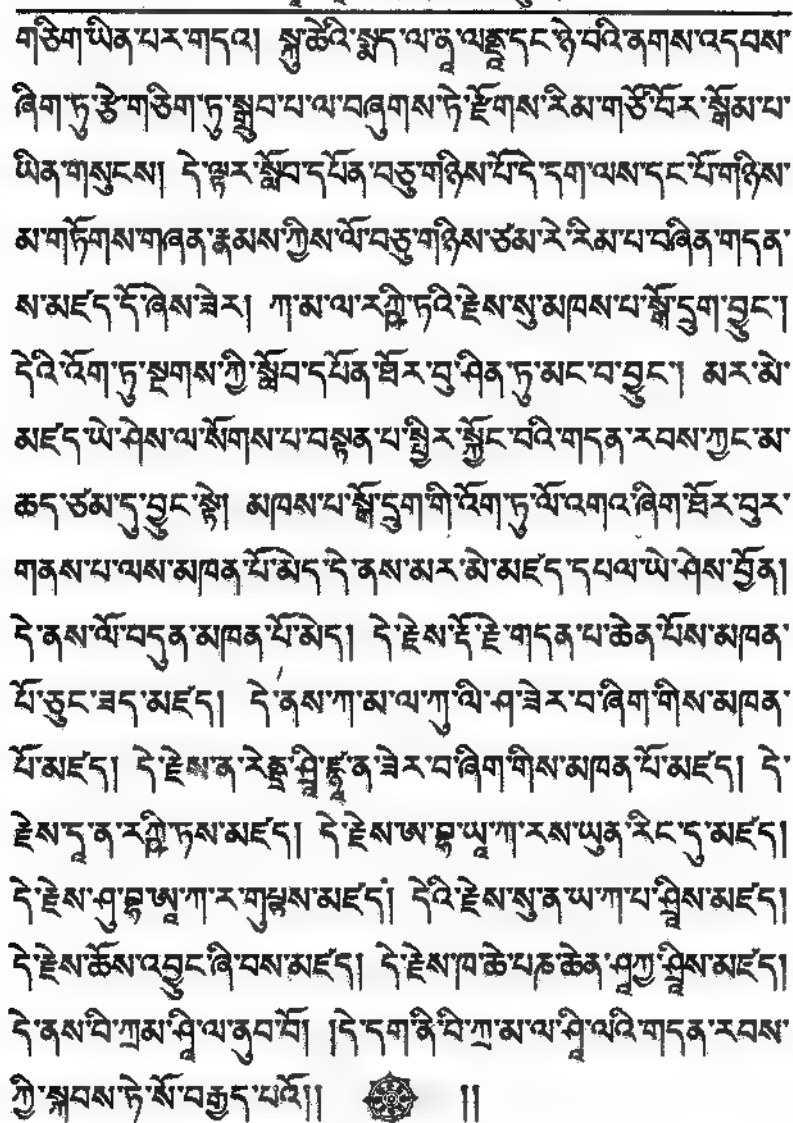 གཅིག་ཡིན་པར་གདའ། སྐུ་ཚེའི་སྨད་ལ་ན་ལནྡྲ་དང་ཉེ་བའི་ནགས་འདབས་
ཞིག་ཏུ་རྩེ་གཅིག་ཏུ་སྒྲུབ་པ་ལ་བཞུགས་ཏེ་རྫོགས་རིམ་གཙོ་བོར་སྒོམ་པ་
ཡིན་གསུངས། དེ་ལྟར་སློབ་དཔོན་བཅུ་གཉིས་པོ་དེ་དག་ལས་དང་པོ་གཉིས་
མ་གཏོགས་གཞན་རྣམས་ཀྱིས་ལོ་བཅུ་གཉིས་ཙམ་རེ་རིམ་པ་བཞིན་གདན་
ས་མཛད་དོ་ཞེས་ཟེར། ཀ་མ་ལ་རཀྵི་ཏའི་རྗེས་སུ་མཁས་པ་སྒོ་དྲུག་བྱུང་།
དེའི་འོག་ཏུ་སྔགས་ཀྱི་སློབ་དཔོན་ཐོར་བུ་ཤིན་ཏུ་མང་བ་བྱུང་། མར་མེ་
མཛད་ཡེ་ཤེས་ལ་སོགས་པ་བསྟན་པ་སྤྱིར་སྐྱོང་བའི་གདན་རབས་ཀྱང་མ་
ཆད་ཙམ་དུ་བྱུང་སྟེ། མཁས་པ་སྒོ་དྲུག་གི་འོག་ཏུ་ལོ་འགའ་ཞིག་ཐོར་བུར་
གནས་པ་ལས་མཁན་པོ་མེད་དེ་ནས་མར་མེ་མཛད་དཔལ་ཡེ་ཤེས་བྱོན།
དེ་ནས་ལོ་བདུན་མཁན་པོ་མེད། དེ་རྗེས་རྡོ་རྗེ་གདན་པ་ཆེན་པོས་མཁན་
པོ་ཅུང་ཟད་མཛད། དེ་ནས་ཀ་མ་ལ་ཀུ་ལི་ཤ་ཟེར་བ་ཞིག་གིས་མཁན་
པོ་མཛད། དེ་རྗེས་ན་རེནྡྲ་ཤྲཱི་ཛྙཱ་ན་ཟེར་བ་ཞིག་གིས་མཁན་པོ་མཛད། དེ་
རྗེས་དཱ་ན་རཀྵི་ཏས་མཛད། དེ་རྗེས་ཨ་བྷ་ཡཱ་ཀ་རས་ཡུན་རིང་དུ་མཛད།
དེ་རྗེས་ཤུ་བྷ་ཨཱ་ཀ་ར་གུཔྟས་མཛད། དེའི་རྗེས་སུ་ན་ཡ་ཀ་པ་ཤྲཱིས་མཛད།
དེ་རྗེས་ཆོས་འབྱུང་ཞི་བས་མཛད། དེ་རྗེས་ཁ་ཆེ་པཎ་ཆེན་ཤཱཀྱ་ཤྲཱིས་མཛད།
དེ་ནས་བི་ཀྲམ་ཤཱི་ལ་ནུབ་བོ། །དེ་དག་ནི་བི་ཀྲ་མ་ལ་ཤཱི་ལའི་གདན་རབས་
ཀྱི་སྐབས་ཏེ་སོ་བརྒྱད་པའོ།། །།